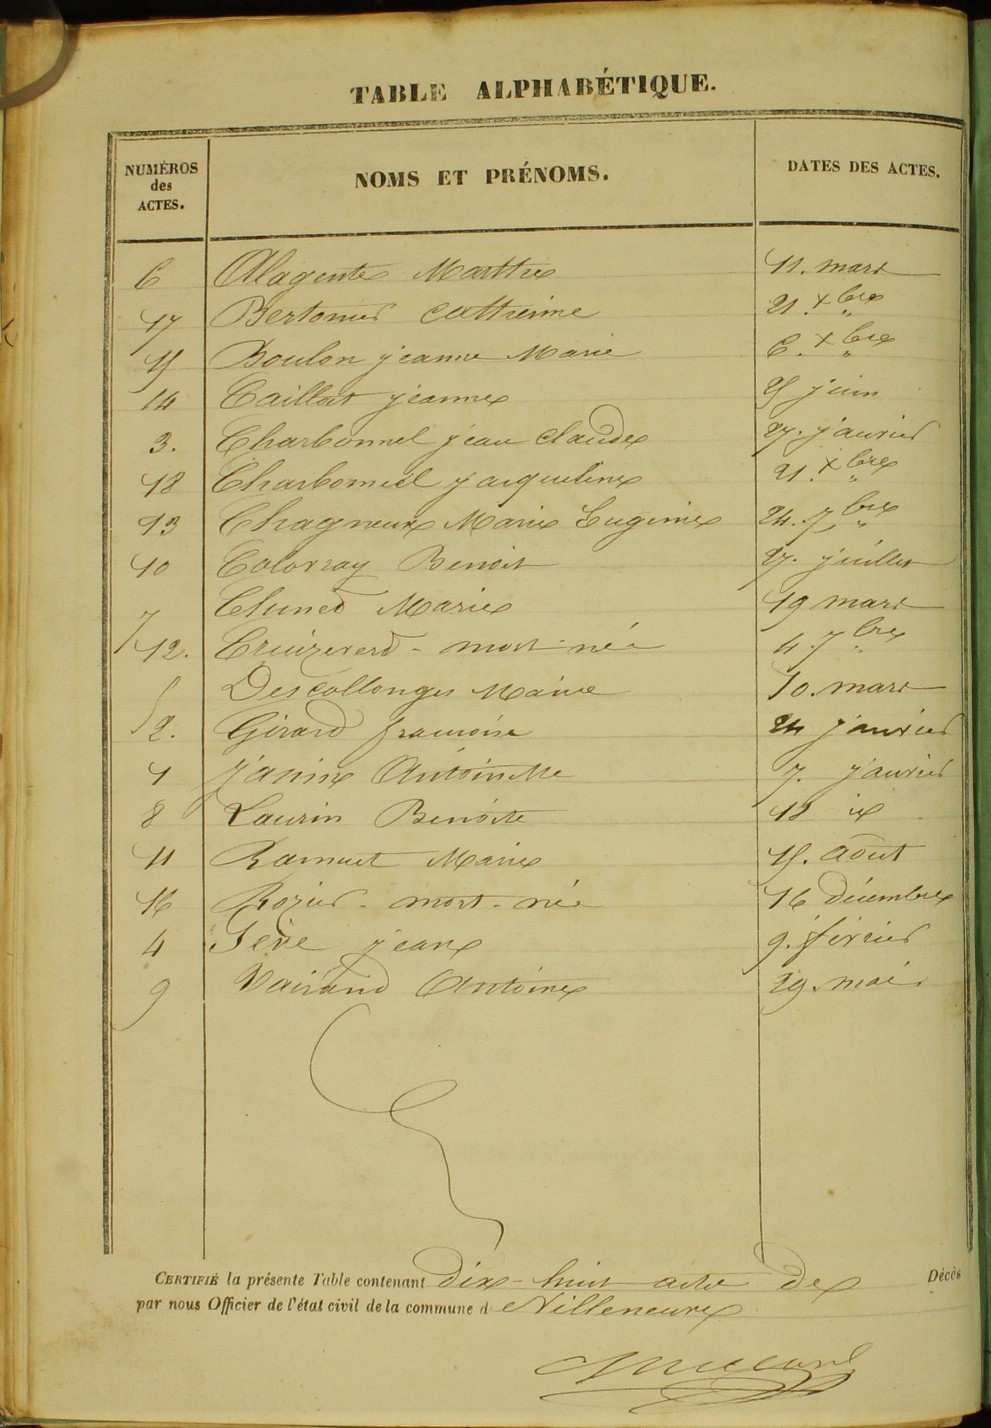 TABLE ALPHABÉTIQUE.
NUMÉROS des ACTES. NOMS ET PRÉNOMS. DATES DES ACTES.
6 Alagente Marthe 11. mars
17 Bertonier Catherine 21. Xbre
15 Boulon jeanne Marie 6. Xbre
14 Caillot jeanne 25 juin
3. Charbonnel jean Claude 27. janvier
18 Charbonnel jacqueline 21. Xbre
13 Chagneux Marie Eugenie 24. 7bre
10 Benoit 27. juillet
7 Marie 19 mars
12. mort-née 4. 7bre
5 Descollonges Marie 10. mars
2. Girard françoise 24 janvier
1 Janin Antoinette 7. janvier
8 Laurin Benoite 18 ix
11 Ramuet Marie 15. août
16 Rozier-mort-née 16 décembre
4 Sève jean 9. février
9 Vairand Antoine 29. mai
CERTIFIÉ la présente Table contenant dix-huit acte de Décès
par nous Officier de l'état civil de la commune d Villeneuve